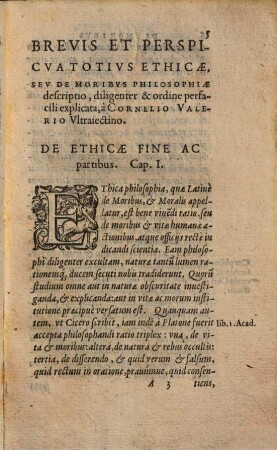 25
BREVIS ET PERSPI
CVA TOTIVS ETHICÆ,
SEV DE MORIBVS PHILOSOPHIÆ
descriptio, diligenter & ordine perfa-
cili explicata, à CORNELIO VALE-
RIO Vltraiectino.
DE ETHICÆ FINE AC
partibus. Cap. I.
EThica philosophia, quæ Latinè
de Moribus, & Moralis appel-
latur, est bene viuẽdi ratio, seu
de moribus & vitæ humanæ a-
ctionibus, atque officijs rectè in
dicandi scientia. Eam philoso-
phi diligenter excultam, naturæ tanꝗ̃ lumen
rationemq́; ducem secuti nobis tradiderunt. Quorũ
studium omne aut in naturæ obscuritate inuesti-
ganda, & explicanda: aut in vitæ ac morum insti-
tutione præcipuè versatum est. Quanquam au-
tem, vt Cicero scribit, iam indè à Platone fuerit
lib. 1. Acad.
accepta philosophandi ratio triplex: vna, de vi-
ta & moribus: altera, de natura & rebus occultis:
tertia, de disserendo, & quid verum & falsum,
quid rectum in oratione, prauumue, quid consen-
A 3 tiens,